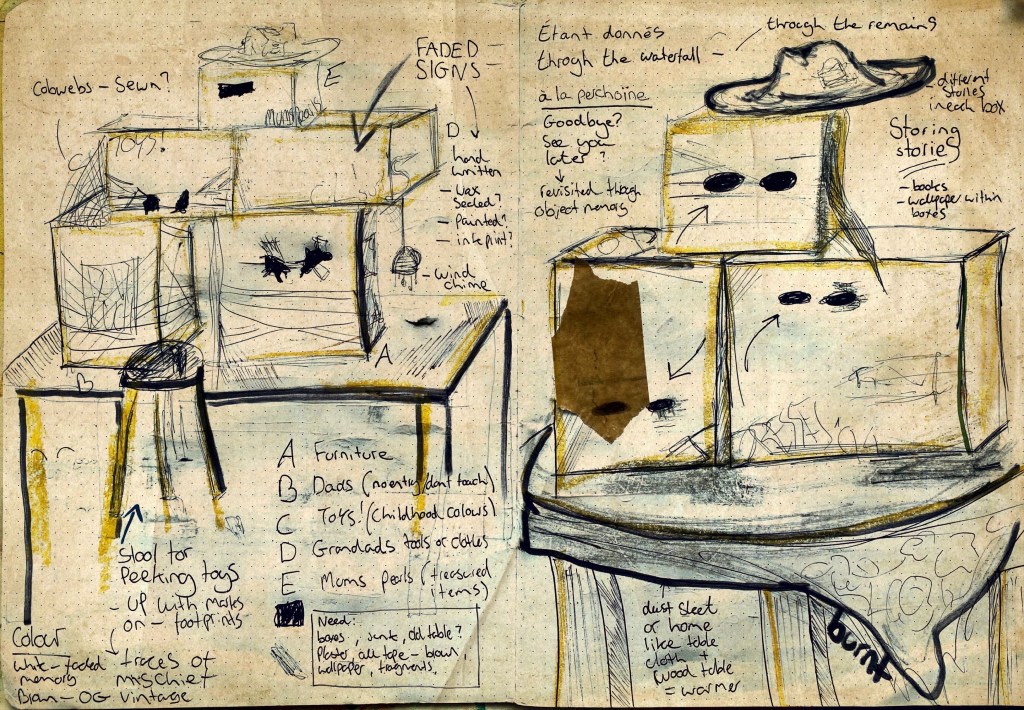 Cobwebs - Sewn?
E
FADED
SIGNS
TOYS!
C
D
hand
written
- wax
sealed?
- Painted?
- ink print?
- wind
chime
A
B
A Furniture
B Dads (no entry/dont touch)
C TOYS! (Childhood colours)
D Grandads tools or clothes
E Mums pearls (treasured
items)
Need:
boxes, junk, old table?
Plaster, all tape - brown,
wallpaper, fragments.
Stool for
Peeking toys
- UP with marks
on - footprints
traces of
mischief
Colour
White - faded
memory
Brown - OG vintage
Étant donnés
through the remains
throgh the waterfall -
à la perchoïne
Goodbye?
See you
later?
revisited though
object memory
- different
stories
in each box
Storing
stories
- books
- wallpaper within
boxes
dust sheet
or home
like table
cloth +
wood table
= warmer
burnt